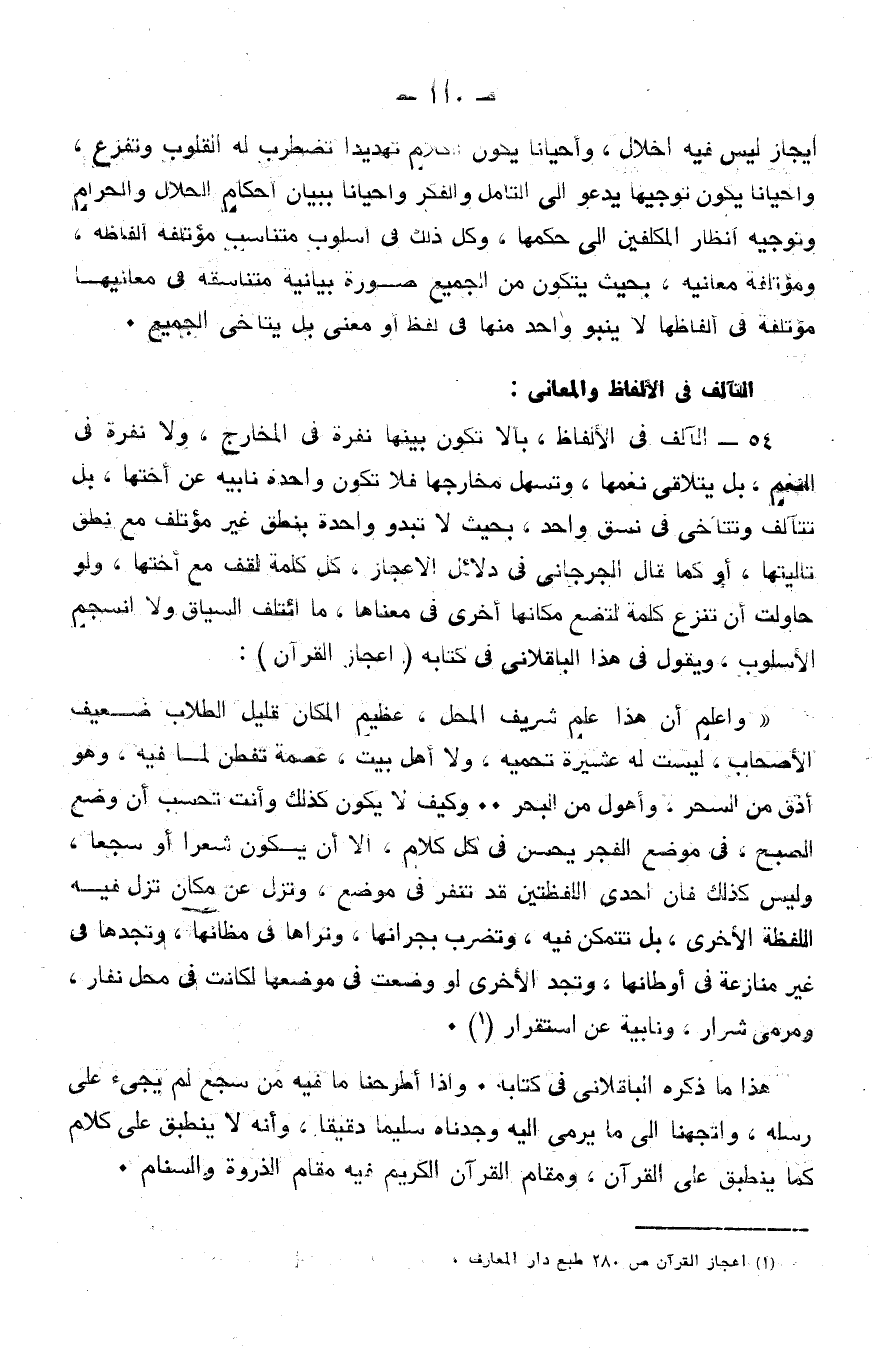 — ١١٠ —
أيجاز ليس فيه اخلال ، وأحيانا يكون الكلام تهديدا تضطرب له القلوب وتفزع ،
واحيانا يكون توجيها يدعو الى التأمل والفكر واحيانا ببيان أحكام الحلال والحرام
وتوجيه أنظار المكلفين الى حكمها ، وكل ذلك فى أسلوب متناسب مؤتلفه ألفاظه ،
ومؤتلفة معانيه ، بحيث يتكون من الجميع صـــورة بيانية متناسقه فى معانيهـــا
مؤتلفة فى ألفاظها لا ينبو واحد منها فى لفظ أو معنى بل يتاخى الجميع ٠
التآلف فى الألفاظ والمعانى :
٥٤ — التآلف فى الألفاظ ، بألا تكون بينها نفرة فى المخارج ، ولا نفرة فى
النغم ، بل يتلاقى نغمها ، وتسهل مخارجها فلا تكون واحدة نابيه عن أختها ، بل
تتآلف وتتاخى فى نسق واحد ، بحيث لا تبدو واحدة بنطق غير مؤتلف مع نطق
تاليتها ، أو كما قال الجرجانى فى دلائل الاعجاز ، كل كلمة لقف مع أختها ، ولو
حاولت أن تنزع كلمة لتضع مكانها أخرى فى معناها ، ما ائتلف السياق ولا انسجم
الأسلوب ، ويقول فى هذا الباقلانى فى كتابه ( اعجاز القرآن ) :
« واعلم أن هذا علم شريف المحل ، عظيم المكان قليل الطلاب ضـــعيف
الأصحاب ، ليست له عشيرة تحميه ، ولا أهل بيت ، عصمة تفطن لمـــا فيه ، وهو
أدق من السحر ، وأهول من البحر ٠٠ وكيف لا يكون كذلك وأنت تحسب أن وضع
الصبح ، فى موضع الفجر يحسن فى كل كلام ، الا أن يـــكون شعرا أو سجعا ،
وليس كذلك فان احدى اللفظتين قد تنفر فى موضع ، وتزل عن مكان تزل فيـــه
اللفظة الأخرى ، بل تتمكن فيه ، وتضرب بجرانها ، وتراها فى مظانها ، وتجدها فى
غير منازعة فى أوطانها ، وتجد الأخرى لو وضعت فى موضعها لكانت فى محل نفار ،
ومرمى شرار ، ونابية عن استقرار (١) ٠
هذا ما ذكره الباقلانى فى كتابه ٠ واذا أطرحنا ما فيه من سجع لم يجىء على
رسله ، واتجهنا الى ما يرمى اليه وجدناه سليما دقيقا ، وأنه لا ينطبق على كلام
كما ينطبق على القرآن ، ومقام القرآن الكريم فيه مقام الذروة والسنام ٠
(١) اعجاز القرآن ص ٢٨٠ طبع دار المعارف ،